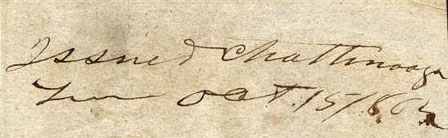 Issued Chattanooga
Ten Oct. 15/863